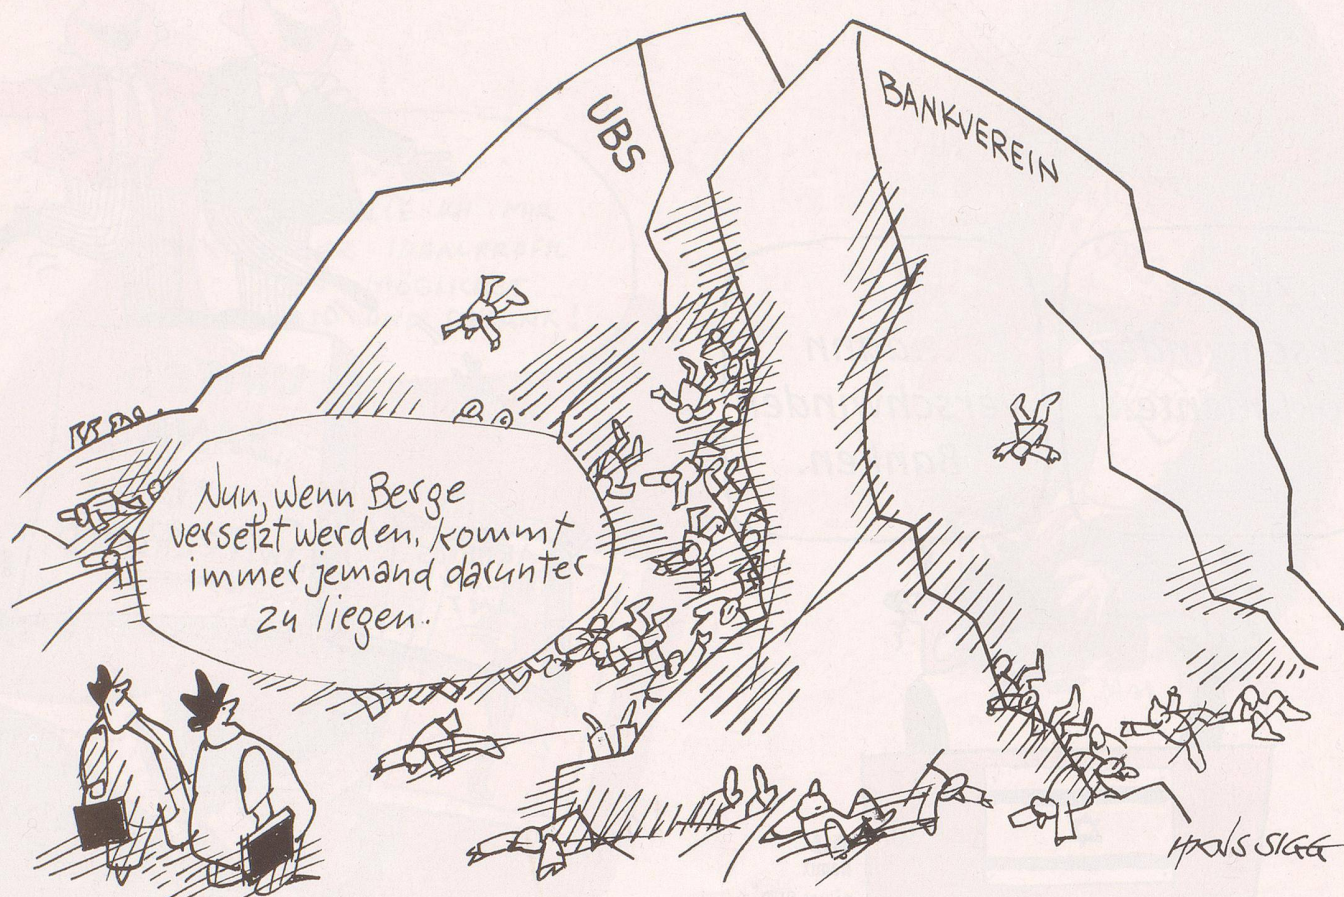 UBS
BANKVEREIN
Nun, wenn Berge
versetzt werden, kommt
immer jemand darunter
zu liegen.
HANS SIGG